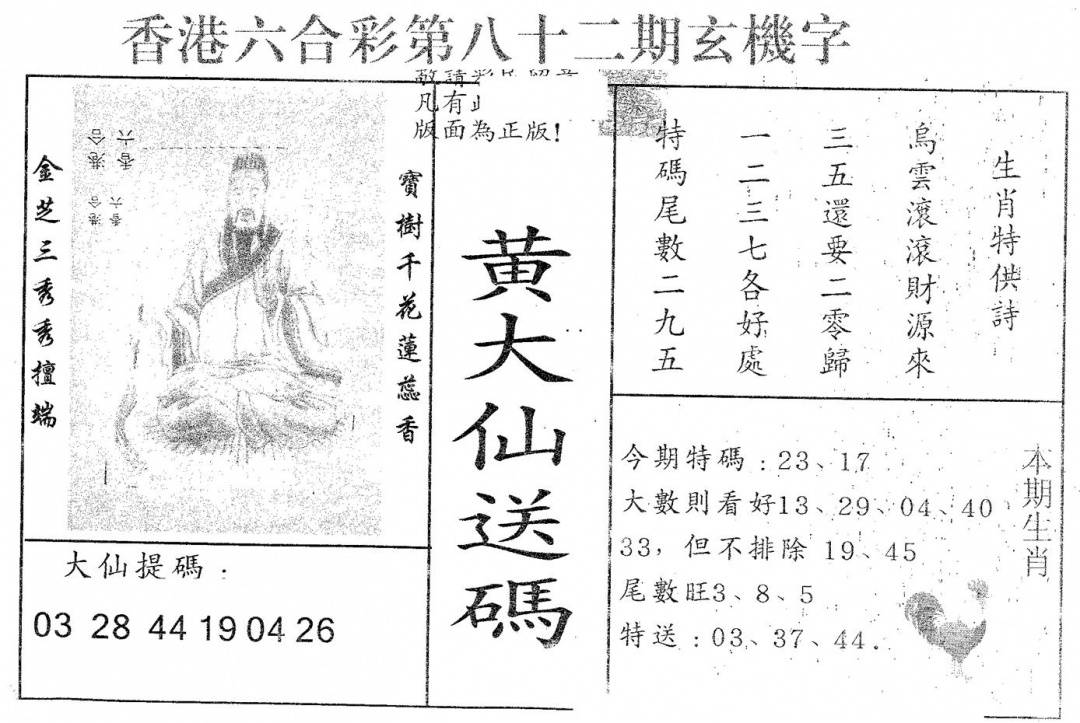 香港六合彩第八十二期玄機字
敬請彩民留意
凡有
版面為正版!
金芝三秀秀擅端
寶樹千花蓮蕊香
香六
港合
香六
港合
大仙提碼:
03 28 44 19 04 26
黃大仙送碼
生肖特供詩
烏雲滾滾財源來
三五還要二零歸
一二三七各好處
特碼尾數二九五
今期特碼:23、17
大數則看好13、29、04、40
33,但不排除 19、45
尾數旺3、8、5
特送:03、37、44.
本期生肖